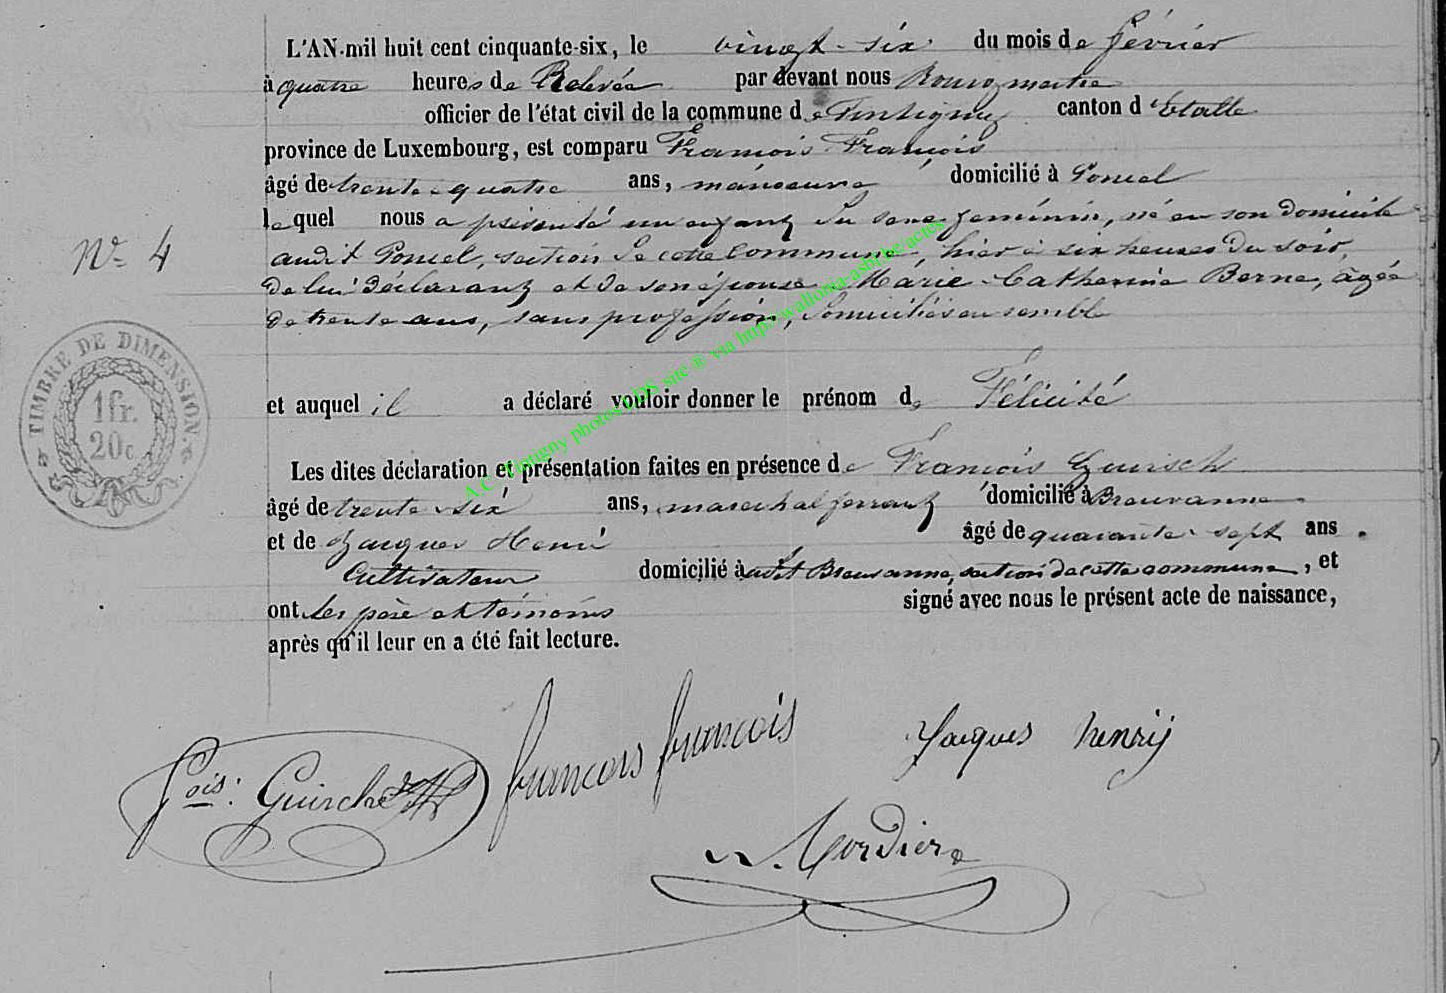 L'AN mil huit cent cinquante-six, le vingt-six du mois de février
à quatre heures de Relevée par devant nous Bourgmestre
officier de l'état civil de la commune de Tintigny canton d'Etalle
province de Luxembourg, est comparu François François
âgé de trente-quatre ans, manoeuvre domicilié à Poncel
lequel nous a présenté un enfant du sexe féminin, né en son domicile
N° 4
audit Poncel, section de cette commune, hier à six heures du soir,
de lui déclarant et de son épouse Marie-Catherine Berne, âgée
de trente ans, sans profession, domiciliés ensemble
et auquel il a déclaré vouloir donner le prénom de Félicité
TIMBRE DE DIMENSION.
1 fr.
20 c
Les dites déclaration et présentation faites en présence de François Guirsch
âgé de trente-six ans, marechal ferrant domicilié à Breuvanne
et de Jacques Henri âgé de quarante-sept ans
Cultivateur domicilié audit Breuvanne, section de cette commune, et
ont les père et témoins signé avec nous le présent acte de naissance,
après qu'il leur en a été fait lecture.
A.C. Tintigny photos LDS site ® via http://wallonia-asbl.be/actes
fois: Guirche françois françois Jacques henrÿ